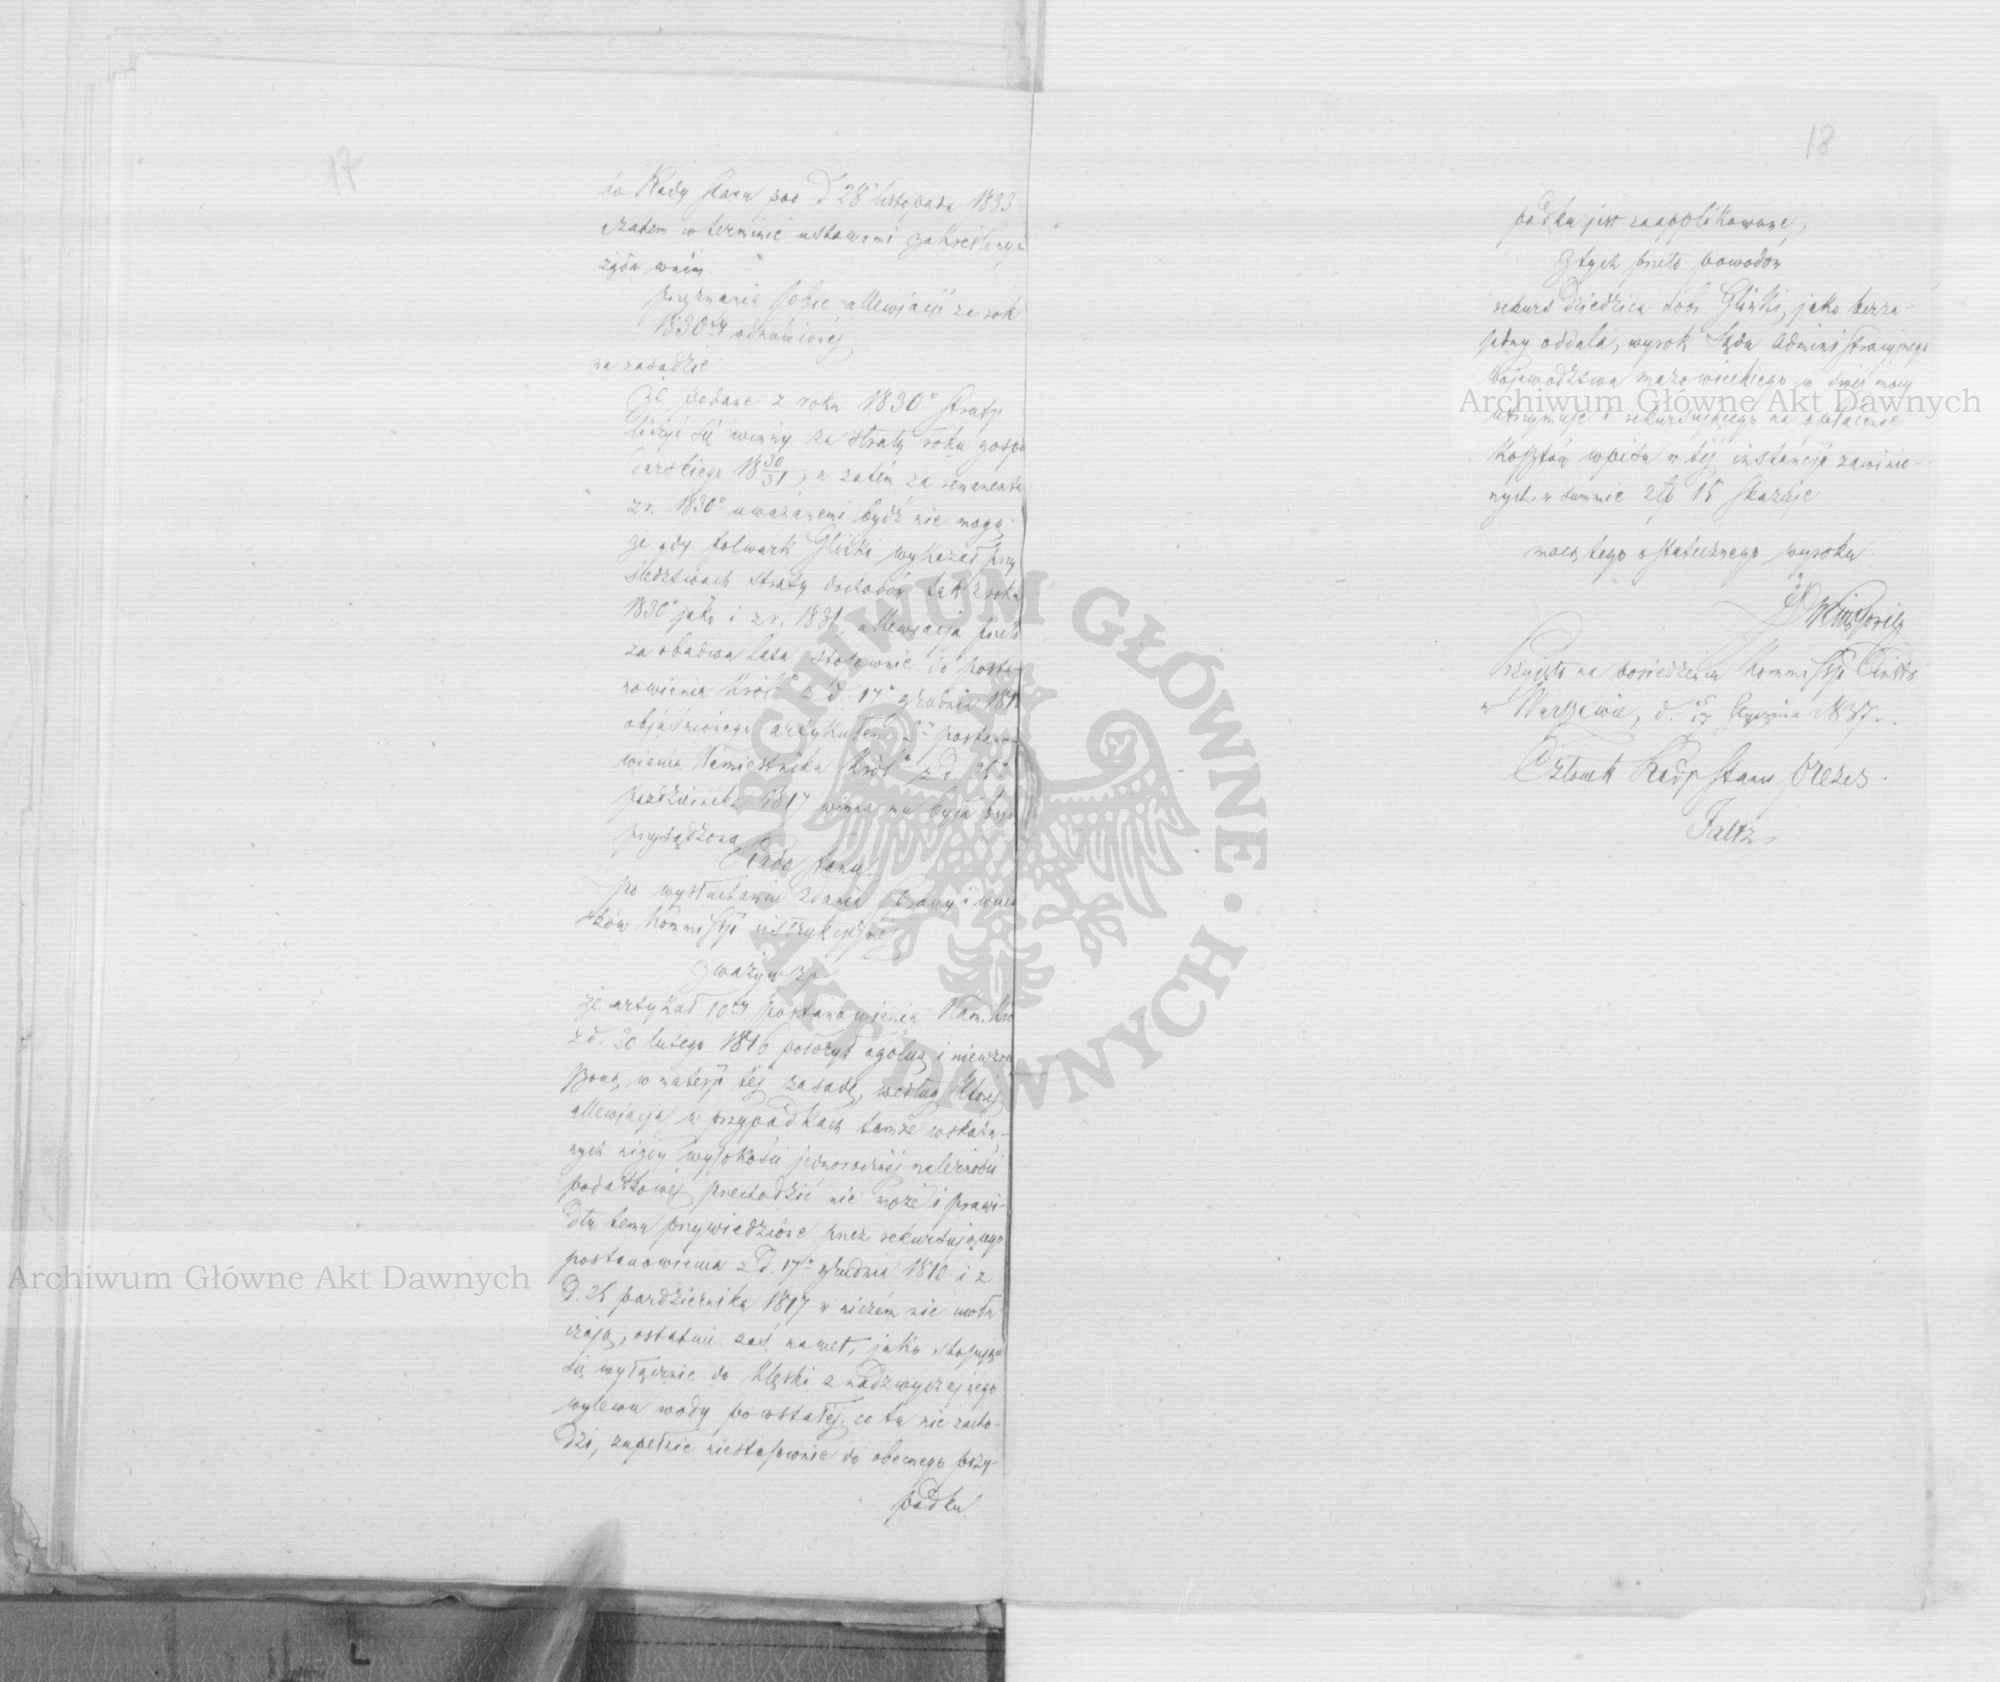 17
do Rady Stanu pod d 28º listopada 1833
a zatem w terminie ustawami zakreślonym
żąda w nim
przyznania sobie allewjacji za rok
1830ty odmówionej
na zasadzie
że podane z roku 1830º straty
liczyć się winny za straty roku gospo
darskiego 18 30/31, a zatém za remanenta
z r. 1830º uważanemi bydź nie mogą;
że gdy folwark Glinki wykazał przy
śledztwach straty dochodów tak z roku
1830º jako i z r. 1831, allewjacja przeto
za obadwa lata stosownie do posta
nowienia Królº z d. 17º grudnia 1810
objaśnionego artykułem postano
wienia Namiestnika Królº z d.
października 1817 winna mu była być
przysądzona
Rada Stanu
po wysłuchaniu zdania sprawy i wnio
sków Kommissji instrukcyjnéj
zważywszy
że artykuł 10ty postanowienia Nam. Kró
z d. 20 lutego 1816 położył ogólną i niewzru
szoną w materji téj zasadę, według któréj
allewjacja w przypadkach tamże wskaza-
nych nigdy wysokości jednorocznéj należności
podatkowéj przechodzić nie może i prawi-
dłu temu przywiedzione przez rekursującego
postanowienia z d. 17º grudnia 1810 i z
d. 25 października 1817 w niczém nie
ostatnie zaś nawet, jako stosujące
się wyłącznie do klęski z nadzwyczajnego
wylewu wody powstałéj, co tu nie zacho-
dzi, zupełnie niestosownie do obecnego przy-
padku
18
padku jest zaapplikowane,
z tych przeto powodów
rekurs dziedzica dóbr Glinki, jako bezza-
sadny oddala, wyrok Sądu Administracyjnego
Województwa Mazowieckiego w swéj mocy
utrzymuje i rekursującego na opłacenie
kosztów wpisu w téj instancji zawinio-
nych w summie złp 15 skazuje
mocą tego ostatecznego wyroku.
Przyjęto na posiedzeniu Kommissji
w Warszawie, d. Stycznia 1837 r.
Członek Rady Stanu Prezes
Faltz
Archiwum Główne Akt Dawnych
Archiwum Główne Akt Dawnych
ARCHIWUM GŁÓWNE · AKT DAWNYCH ·